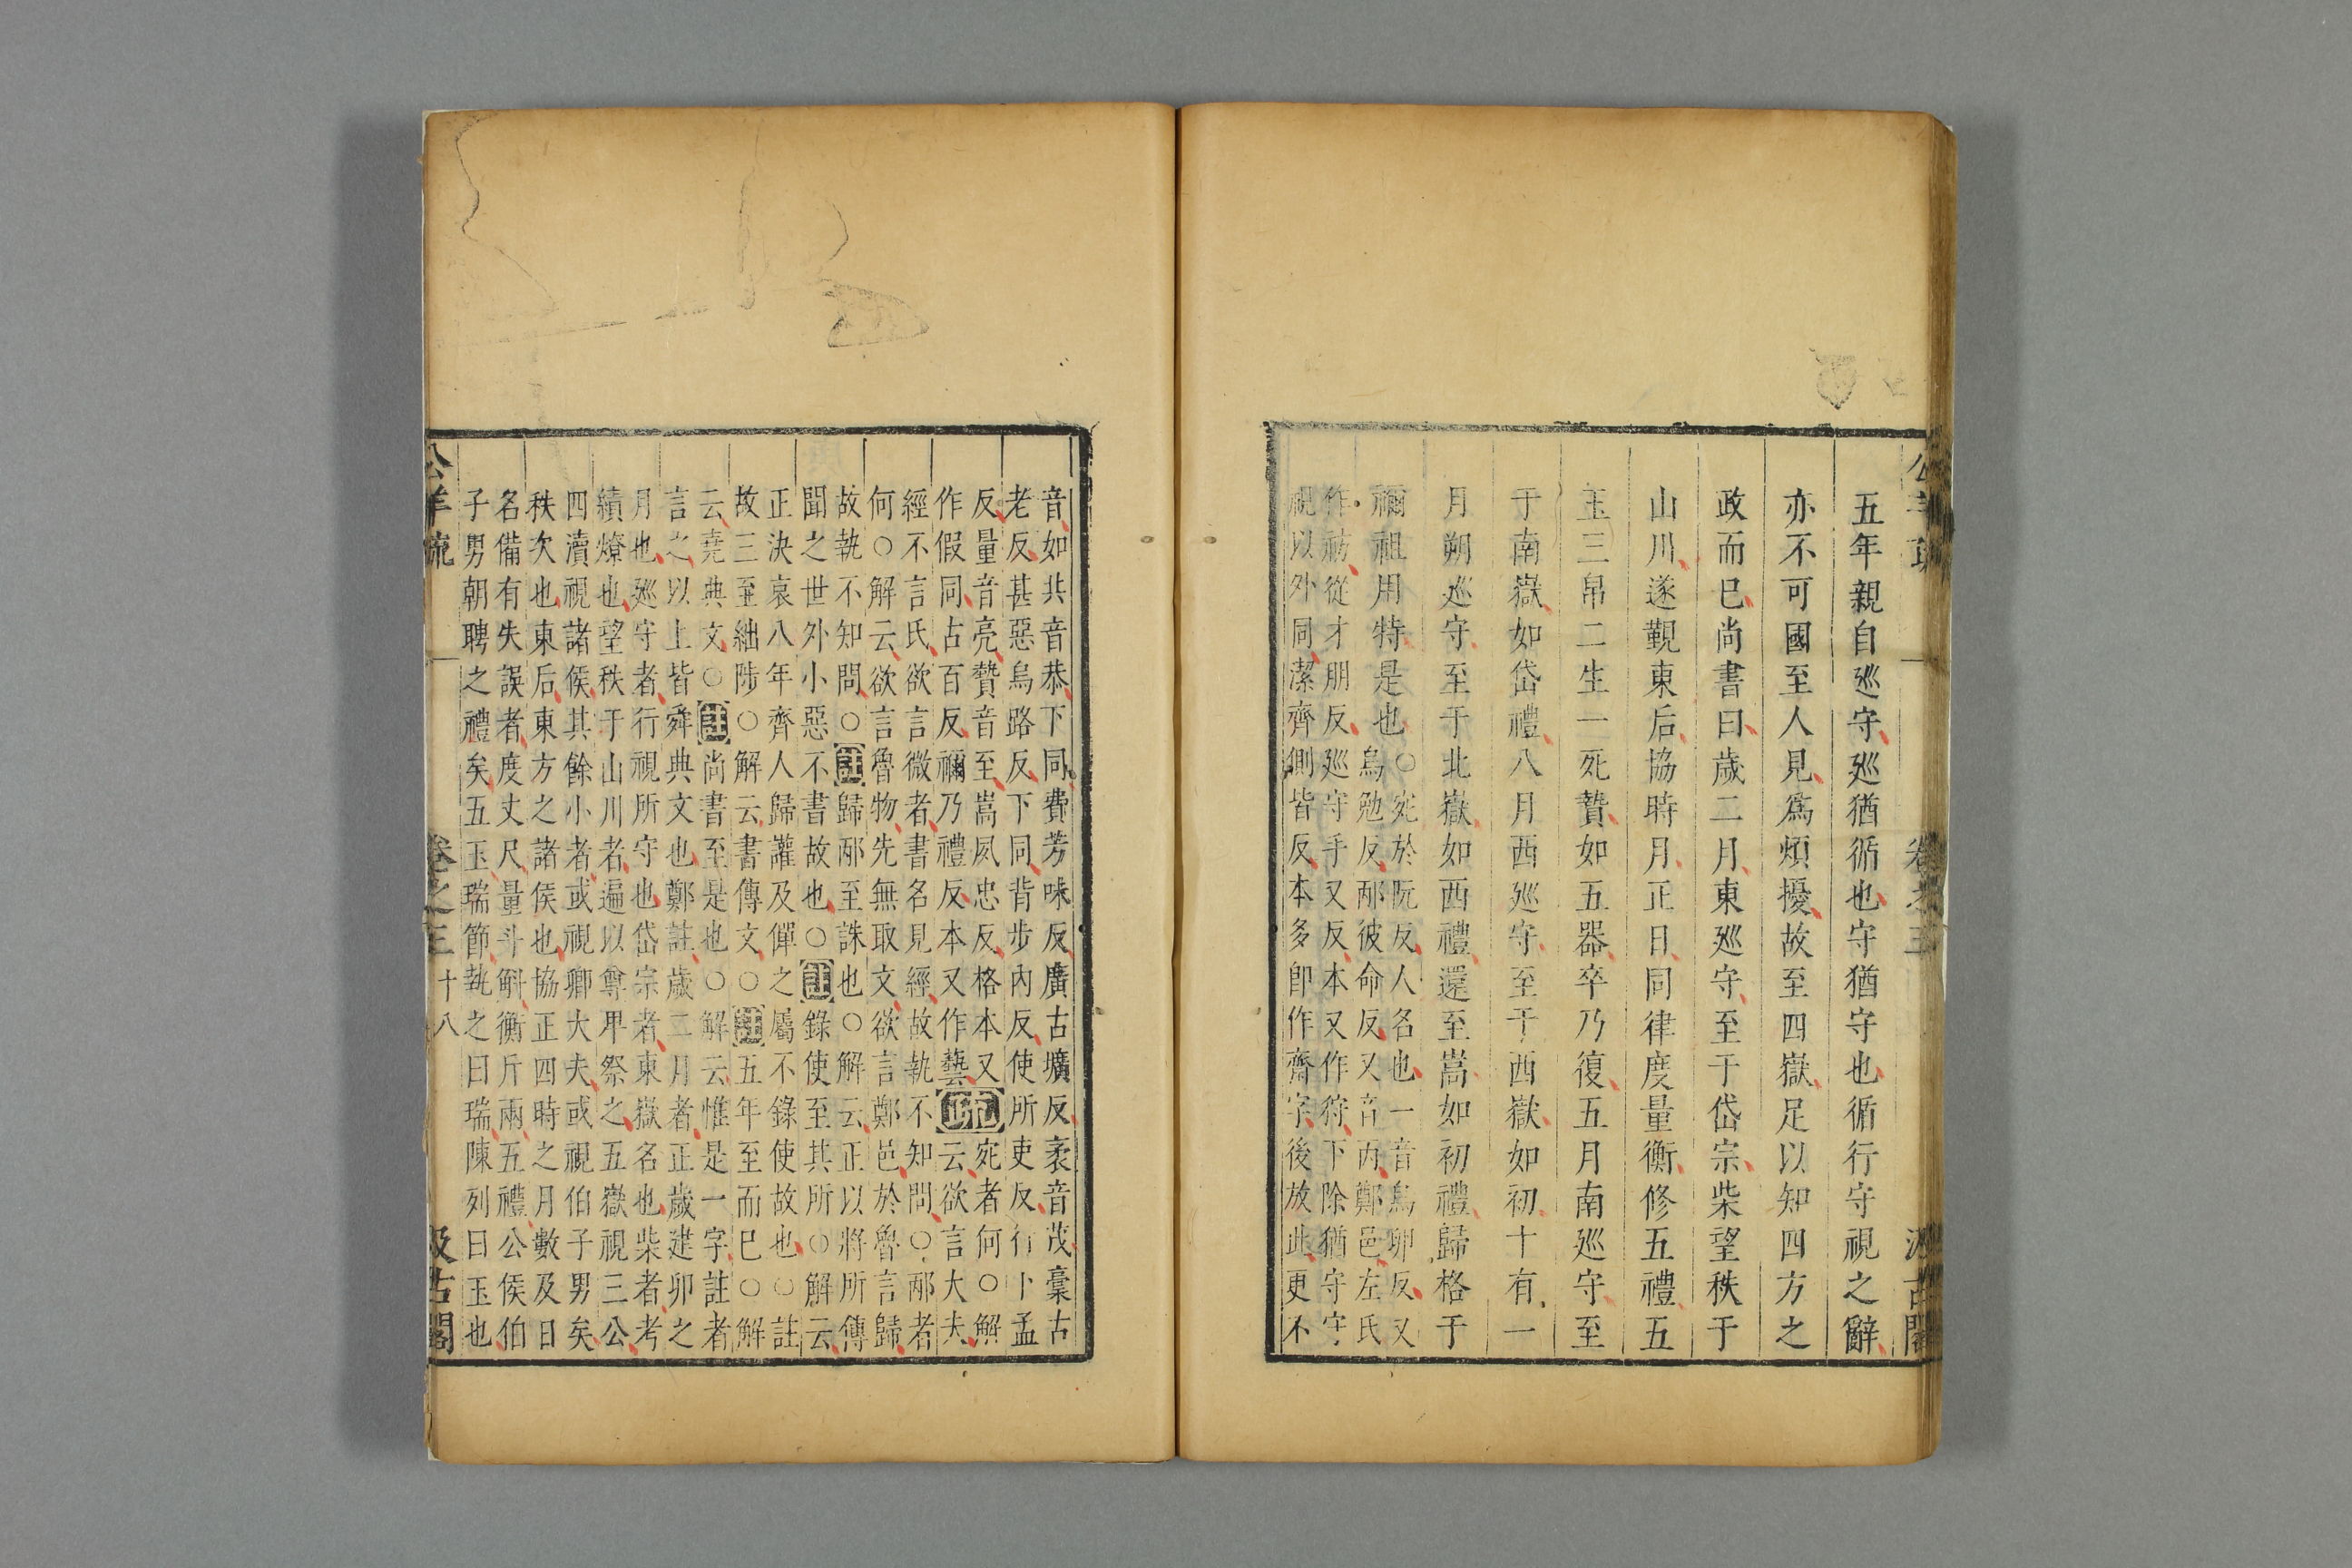 公羊疏
卷之三
汲古閣
五年親自廵守廵猶循也守猶守也循行守視之辭
亦不可國至人見爲煩擾故至四嶽足以知四方之
政而已尚書曰歲二月東廵守至于岱宗柴望秩于
山川遂覲東后協時月正日同律度量衡修五禮五
玉三帛二生一死贄如五器卒乃復五月南廵守至
于南嶽如岱禮八月西廵守至于西嶽如初十有一
月朔廵守至于北嶽如西禮還至嵩如初禮歸格于
禰祖用特是也○
宛於阮反人名也一音烏卵反又
烏勉反邴彼命反又音丙鄭邑左氏
作祊從才朋反廵守手又反本又作狩下除猶守守
視以外同潔齊側皆反本多卽作齋字後放此更不
音如共音恭下同費芳味反廣古壙反袤音茂稾古
老反甚惡烏路反下同背步內反使所吏反行卜孟
反量音亮贄音至嵩夙忠反格本又
作假同古百反禰乃禮反本又作藝
疏
宛者何○解
云欲言大夫
經不言氏欲言微者書名見經故執不知問○邴者
何○解云欲言魯物先無取文欲言鄭邑於魯言歸
故執不知問○註歸邴至誅也○解云正以將所傳
聞之世外小惡不書故也○註錄使至其所○解云
正決哀八年齊人歸讙及僤之屬不錄使故也○註
故三至絀陟○解云書傳文○註五年至而已○解
云堯典文○註尚書至是也○解云惟是一字註者
言之以上皆舜典文也鄭註歲二月者正歲建卯之
月也廵守者行視所守也岱宗者東嶽名也柴者考
績燎也望秩于山川者遍以尊卑祭之五嶽視三公
四瀆視諸侯其餘小者或視卿大夫或視伯子男矣
秩次也東后東方之諸侯也協正四時之月數及日
名備有失誤者度丈尺量斗斛衡斤兩五禮公侯伯
子男朝聘之禮矣五玉瑞節執之曰瑞陳列曰玉也
公羊疏
卷之三
十八
汲古閣